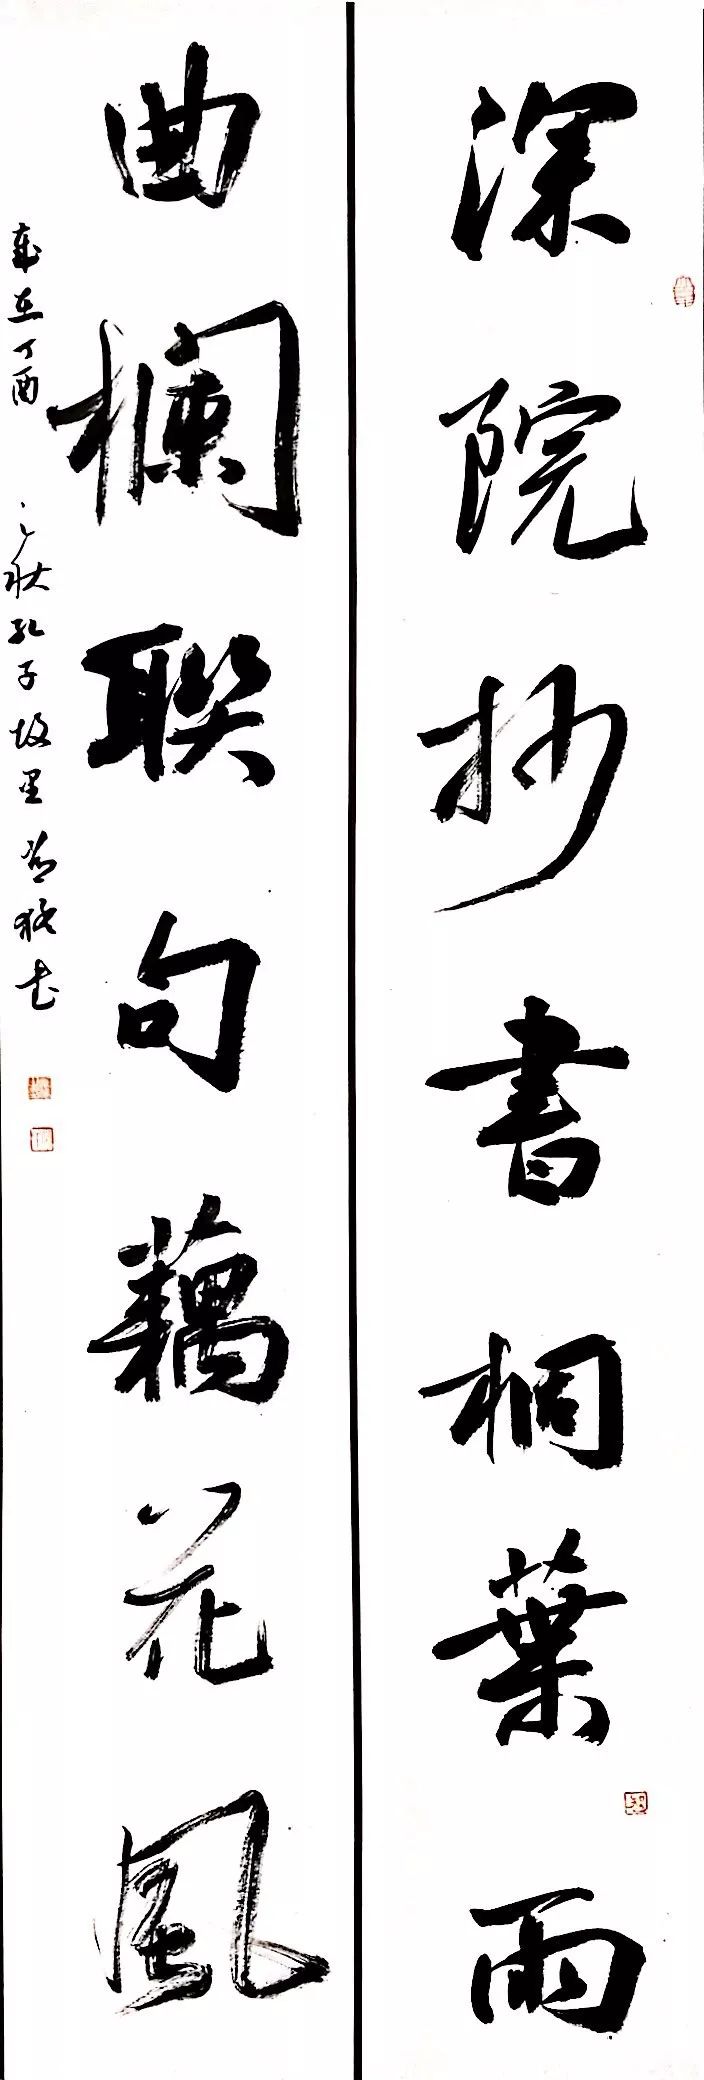 深院抄書桐葉雨
曲欄聯句藕花風
歲在丁酉之秋孔子故里